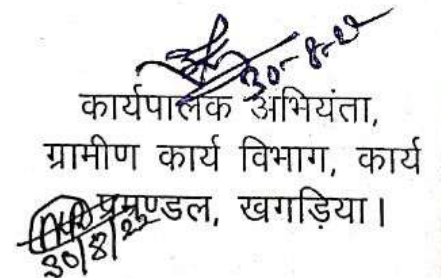 30-8-22
कार्यपालक अभियंता,
ग्रामीण कार्य विभाग, कार्य
प्रमण्डल, खगड़िया।
30/8/22